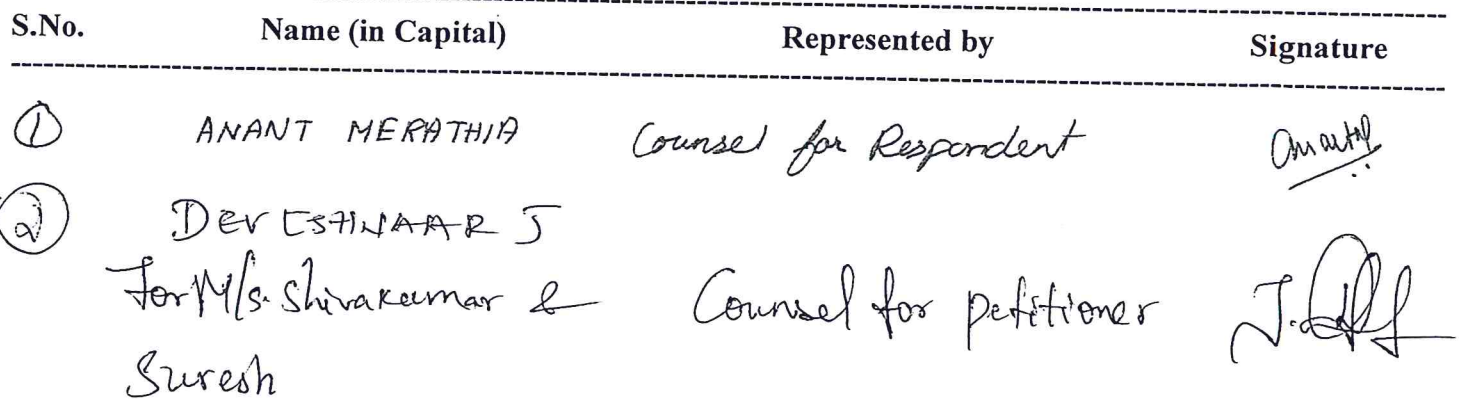 S.No. Name (in Capital) Represented by Signature
1 ANANT MERATHIA Counsel for Respondent
2 DEVESHWAAR J
For M/s. Shivakumar & Counsel for petitioner
Suresh